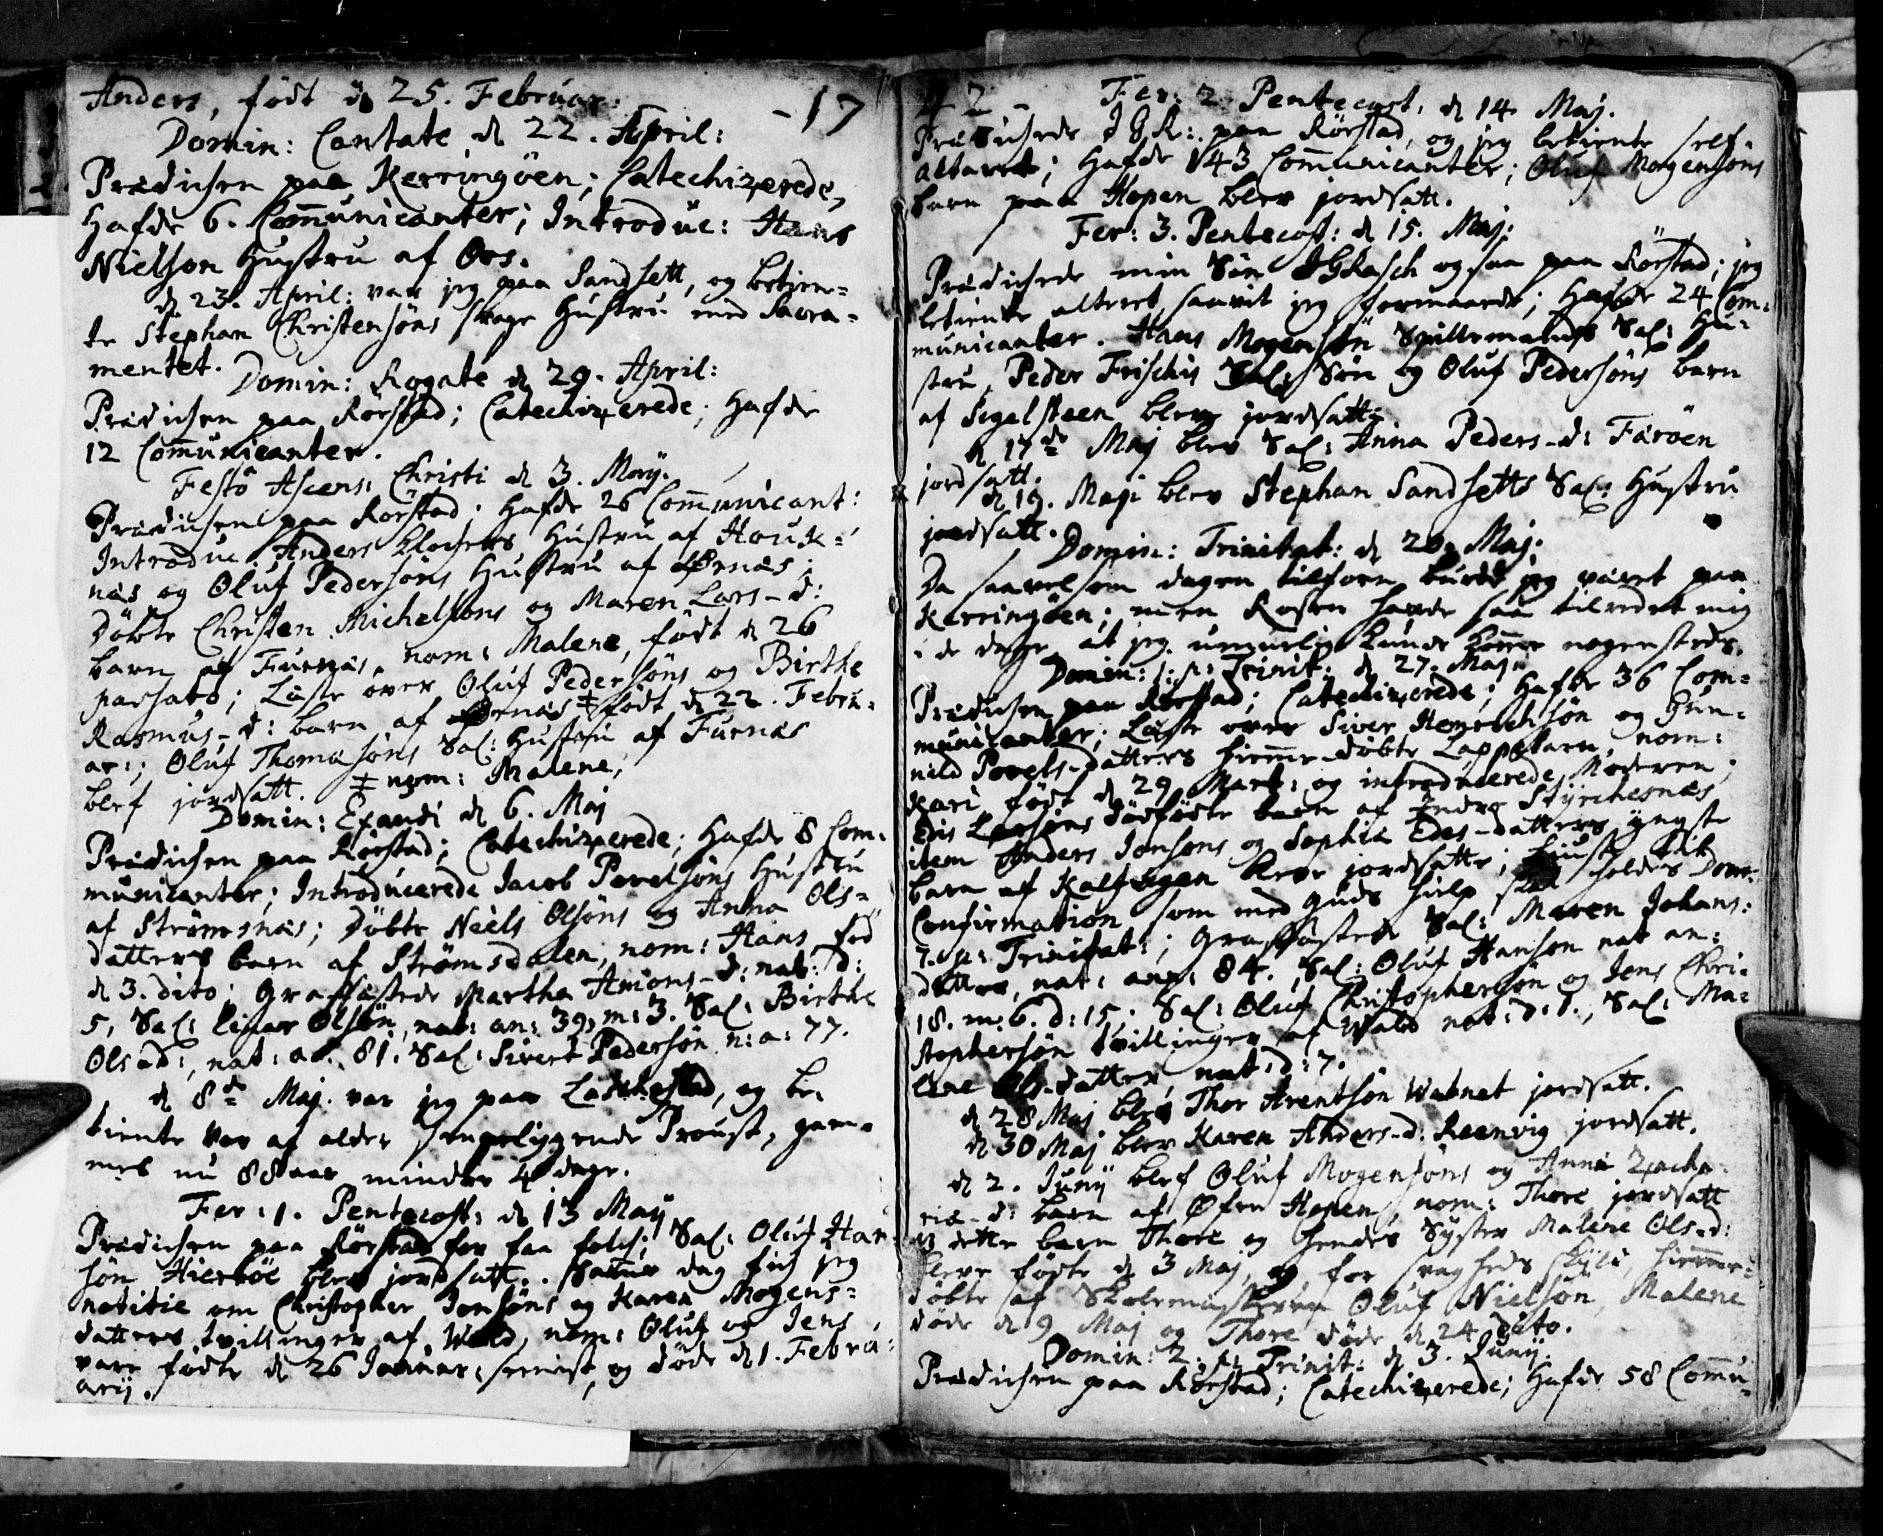 Anders, født d 25. Februar:
-17
Domin: Cantate d 22. April:
Prædichen paa Kerringöen; Catechizerede,
Hafde 6. Com̄unicanter; Introduc: Hans
Nielsøn Hustru af Oos.
d 23. April: var jeg paa Sandsett, og betien-
te Stephan Christensøns svage Hustru med Sacra-
mentet.
Domin: Rogate d 29. April:
Prædichen paa Rörstad; Catechizerede; Hafde
12 Com̄unicanter.
Festo Ascens: Christi d 3. Maij.
Prædichen paa Rörstad. Hafde 26 Com̄unicant:
Introduc: Anders Klochers Hustru af Houk-
næs og Oluf Pedersøns Hustru af Ørnæs;
Döbte Christen Michelsøns og Maren Lars-d:
barn af Furnæs, nom: Malene, født d 26
passato; Læste over Oluf Pedersøns og Birthe
Rasmus-d: barn af Ørnæs ‡ født d 22. Febru-
ar:; Oluf Thomasøns Sal: Hustru af Furnæs
blef jordsatt. ‡ nom: Malene;
Domin: Exaudi d 6. Maj
Prædichen paa Rörstad; Catechizerede; Hafde 8 Com-
municanter; Introducerede Jacob Povelsøns Hustru
af Strømsnæs; Döbte Niels Olsøns og Anna Ols-
datters barn af Strømsdalen, nom: Hans fød
d 3. dito; Grafkastede Martha Amons-d: nat: d:
5, Sal: Einar Olsøn, nat: an: 39, m: 3. Sal: Birthe
Ols d:, nat: an. 81. Sal: Sivert Pedersøn n: a: 77.
d 8de Maj. var jeg paa Laskestad, og be-
tiente vor af alder sengeliggende Proust, gam-
mel nu 88 aar minder 4 dage.
Fer: 1. Pentecost: d 13 Maij
Prædichen paa Rörstad for faa folch; Sal: Oluf Han-
søn Hierböe blev jordsatt. Samme dag fich jeg
notitie om Christopher Jonsøns og Karen Mogens-
datters tvillinger af Wald, nom: Oluf og Jens
vare fødte d 26 Januar: seenist, og døde d 1. Febru-
arij.
42 -
Fer: 2. Pentecost. d 14 Maj.
Prædichede JGR: paa Rörstad, og jeg betiente self
altaret; Hafde 143 Com̄unicanter; Oluf Mogensøns
barn paa Hopen blev jordsatt.
Fer: 3. Pentecost: d 15. Maj:
Prædichede min Søn JGRasch ogsaa paa Rörstad; jeg
betiente alteret saavit jeg formaaede; Hafde 24 Com-
municanter. Hans Mogensøn Spillemands Sal: Hu-
stru, Peder Frischis Sal: Søn og Oluf Pedersøns barn
af Segelsteen bleve jordsatte
d 17de Maj blev Sal: Anna Peders-d: Faröen
jordsatt.
d 19. Maji blev Stephan Sandsetts Sal: Hustru
jordsatt.
Domin: Trinitat: d 20. Maj:
Da saavelsom dagen tilforn burde jeg været paa
Kerringöen; men Rosen hafde saa tilredet mig
i de dage, at jeg umuelig kunde kom̄e nogensteds.
Domin: 1: p: Trinit: d 27. Maj.
Prædichen paa Rörstad; Catechizerede; Hafde 36 Com-
municanter; Læste over Siver Henrichsøn og Gun-
nild Povels-datters hiem̄e-döbte Lappebarn, nom:
Kari, født d 29 Mart: og introducerede Moderen;
Edis Larsøns dødfødte barn af Indre Styrchesnæs
item Anders Jonsøns og Sophia Edes-datters yngste
barn af Kalfvogen bleve jordsatte;
Confirmation som med Guds hielp skal holdes Dom:
7. p: Trinitat:; Grafkastede Sal: Maren Johans:
datter, nat: ann: 84. Sal: Oluf Hansøn nat an:
18. m: 6. d: 15. Sal: Oluf Christophersøn og Jens Chri-
stophersøn tvillinger af Wald nat: d: 1., Sal: Ma-
lene Ols-datter, nat: d: 7.
d 28 Maj blev Thor Arentsøn Watnet jordsatt.
d 30 Maj blev Karen Anders-d: Reenvig jordsatt.
d 2. Junij blef Oluf Mogensøns og Anna Zacha-
riæ-d: barn af Øfre Hopen, nom: Thore jordsatt
dette barn Thore og hendes Syster Malene Ols-d:
bleve fødte d 3 Maj, og for svagheds skyld, hiem̄e-
döbte af Skolemesteren Oluf Nielsøn, Malene
döde d 9 Maj og Thore döde d 24 dito.
Domin: 2. p: Trinit: d 3. Junij.
Prædichen paa Rörstad; Catechizerede; Hafde 58 Com̄u-